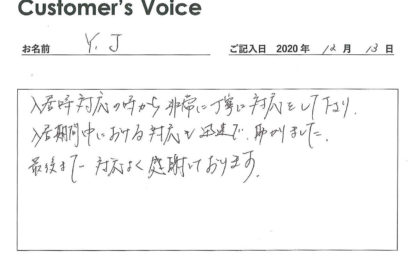 Customer's Voice
お名前 Y. J ご記入日 2020 年 12 月 13 日
入居時対応の時から非常に丁寧に対応をして下り、
入居期間中における対応も迅速で、助かりました。
最後まで対応よく感謝しております。